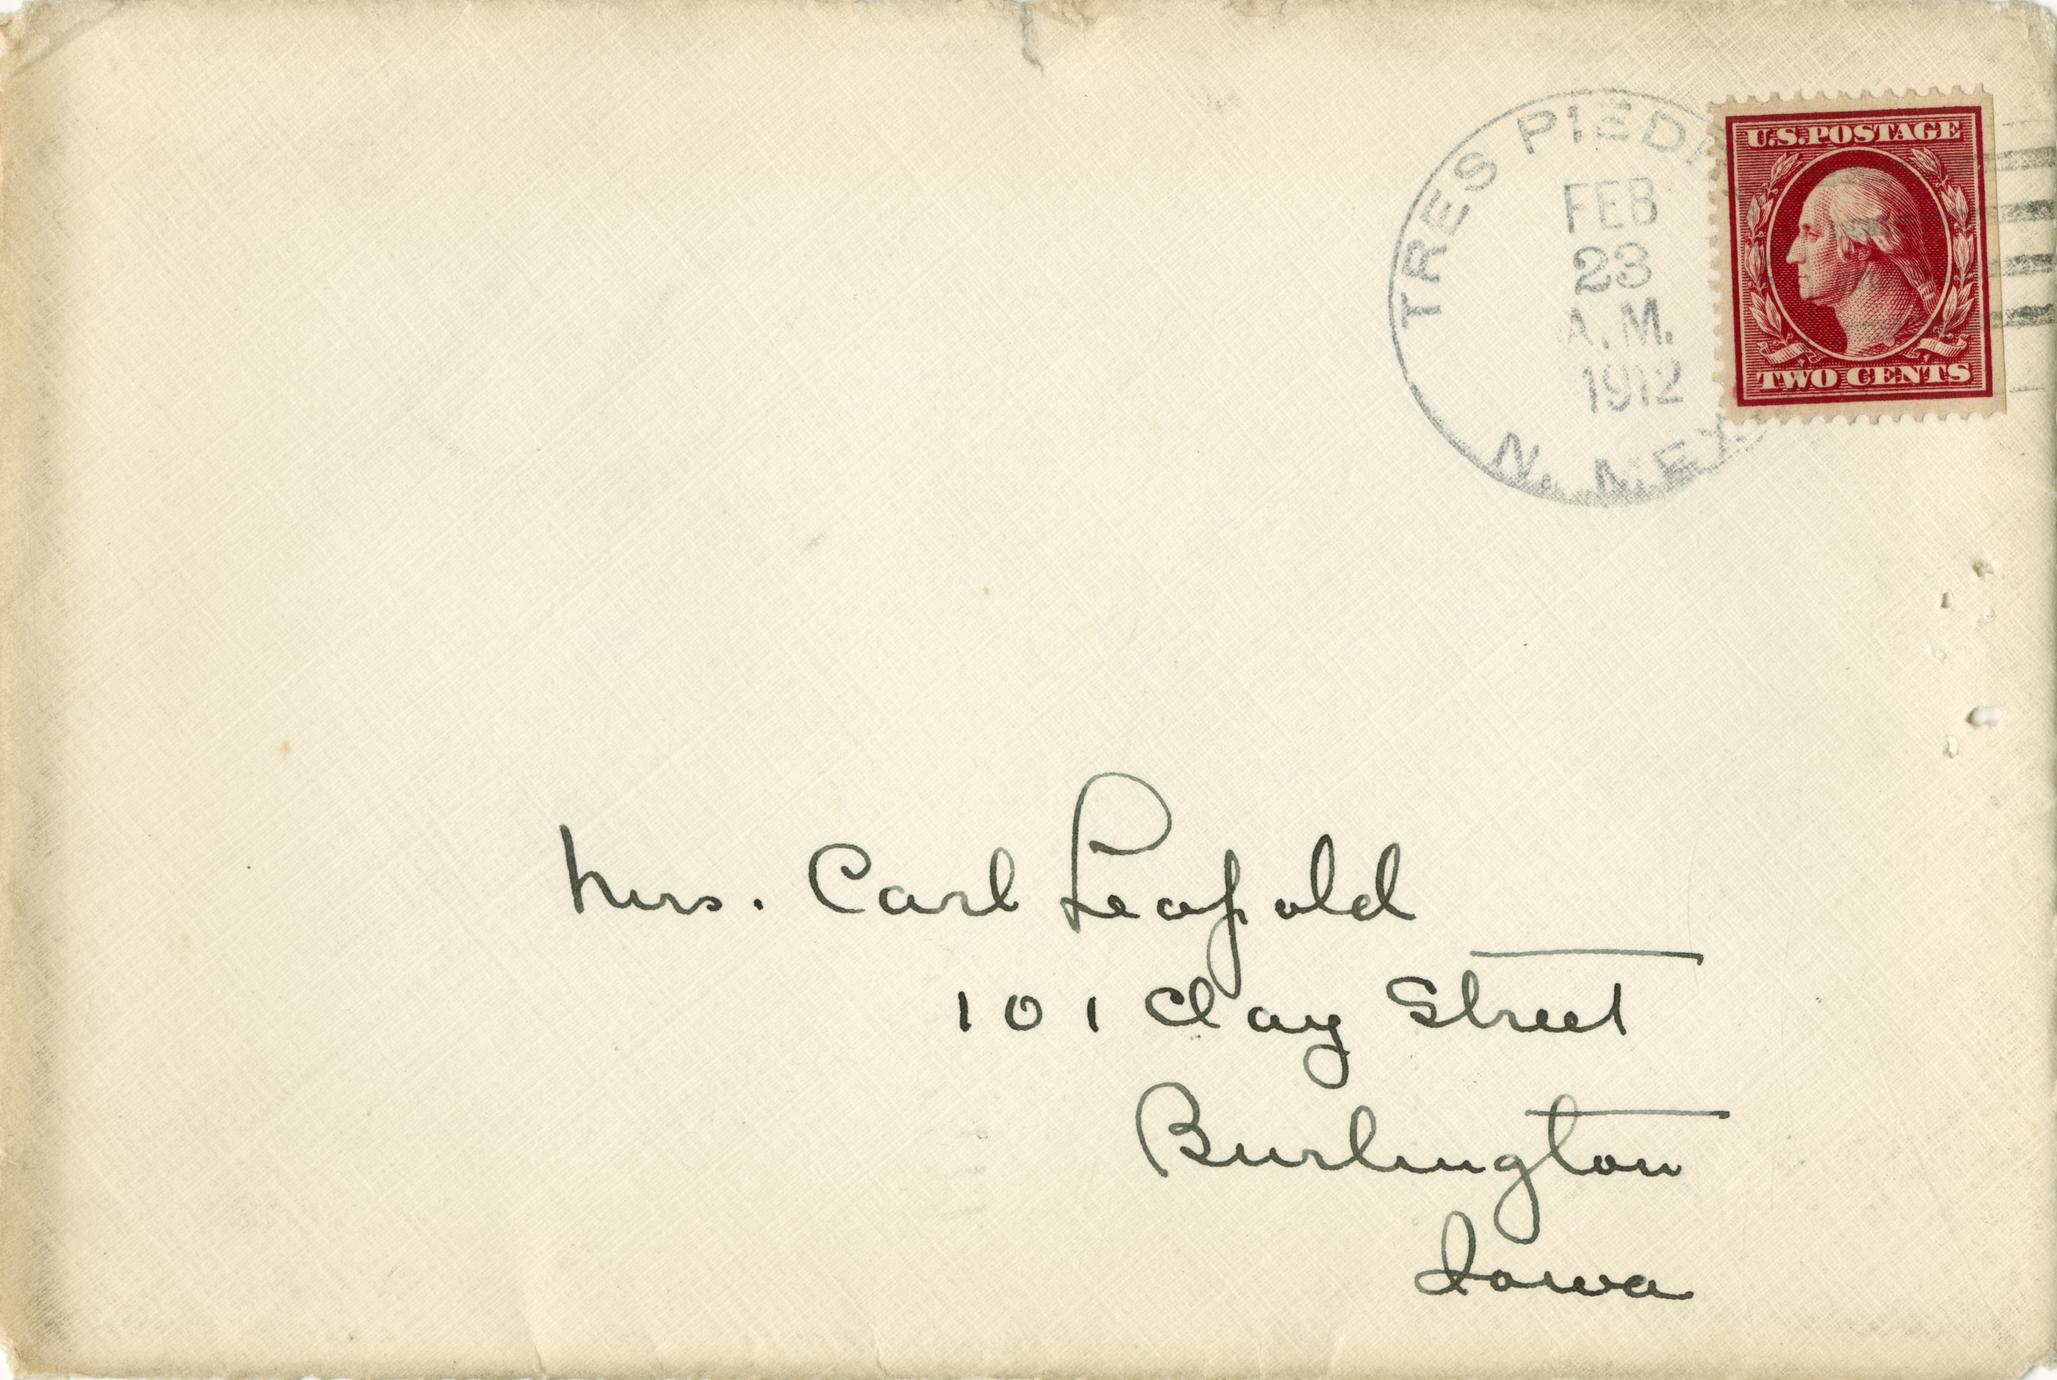 TRES PIEDR
FEB
23
A.M.
1912
N. MEX.
U.S. POSTAGE
TWO CENTS
Mrs. Carl Leopold
101 Clay Street
Burlington
Iowa